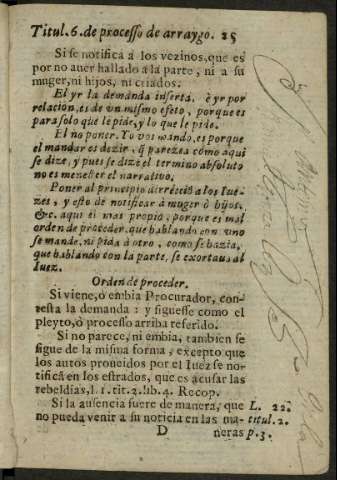 Titul. 6. de processo de arraygo. 25
Si se notifica a los vezinos, que es
por no auer hallado a la parte, ni a su
muger, ni hijos, ni criados.
El yr la demanda inserta, ò yr por
relacion, es de vn mismo efeto, porque es
para solo que le pide, y lo que le pide.
El no poner. Yo vos mando, es porque
el mandar es dezir, q̃ parezca como aqui
se dize, y pues se dize el termino absoluto
no es menester el narrativo.
Poner al principio dirreciõ a los Iue-
zes, y esto de notificar à muger ò hijos.
&c. aqui es mas propio, porque es mal
orden de proceder, que hablando con vno
se mande, ni pida à otro, como se hazia,
que hablando con la parte, se exortaua al
Iuez.
Orden de proceder.
Si viene, ò embia Procurador, con-
testa la demanda: y siguesse como el
pleyto, ò processo arriba referido.
Si no parece, ni embia, tambien se
sigue de la misma forma, excepto que
los autos proueidos por el Iuez se no-
tificã en los estrados, que es acusar las
rebeldias, l. 1. tit. 2. lib. 4. Recop.
Si la ausencia fuere de manera, que
no pueda venir a su noticia en las ma-
L. 22.
titul. 2.
p. 3.
D
neras